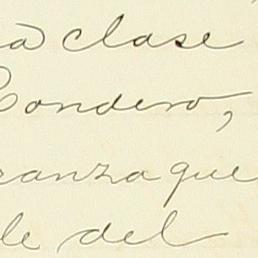 a clase
Condero,
ranza que
le del